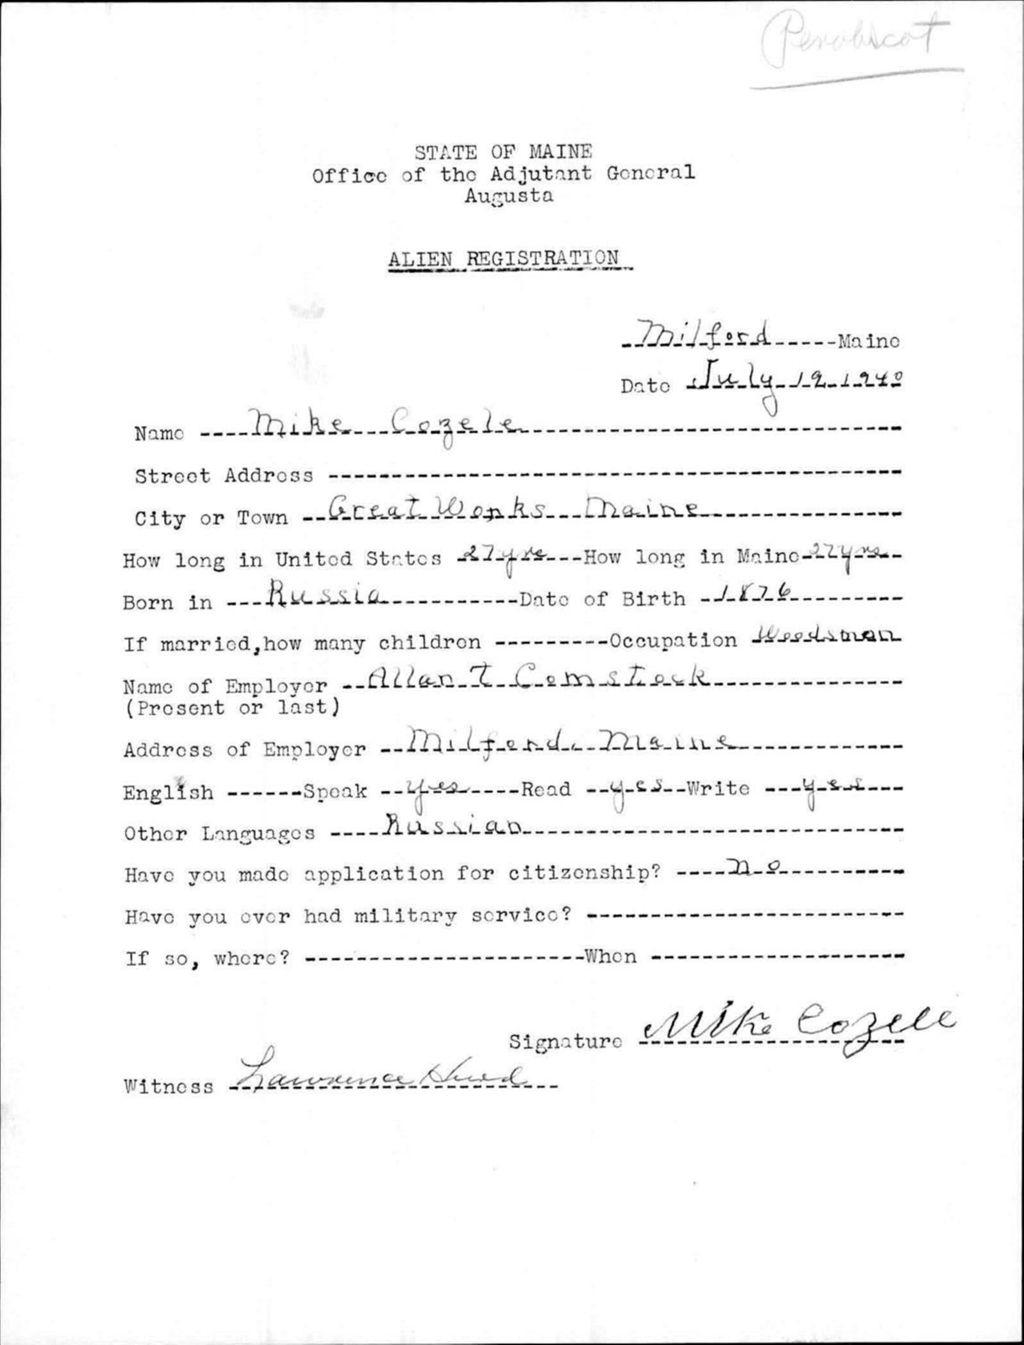 Penobscot
STATE OF MAINE
Office of the Adjutant General
Augusta
ALIEN REGISTRATION
Milford Maine
Date July 19 1940
Name Mike Cozele
Street Address
City or Town Great Works Maine
How long in United States 27 yrs How long in Maine 27 yrs
Born in Russia Date of Birth 1876
If married, how many children Occupation Woodsman
Name of Employer Allan T Comstock
(Present or last)
Address of Employer Milford. Maine
English Speak yes Read yes Write yes
Other Languages Russian
Have you made application for citizenship? no
Have you ever had military service?
If so, where? When
Signature Mike Cozele
Witness Lawrence